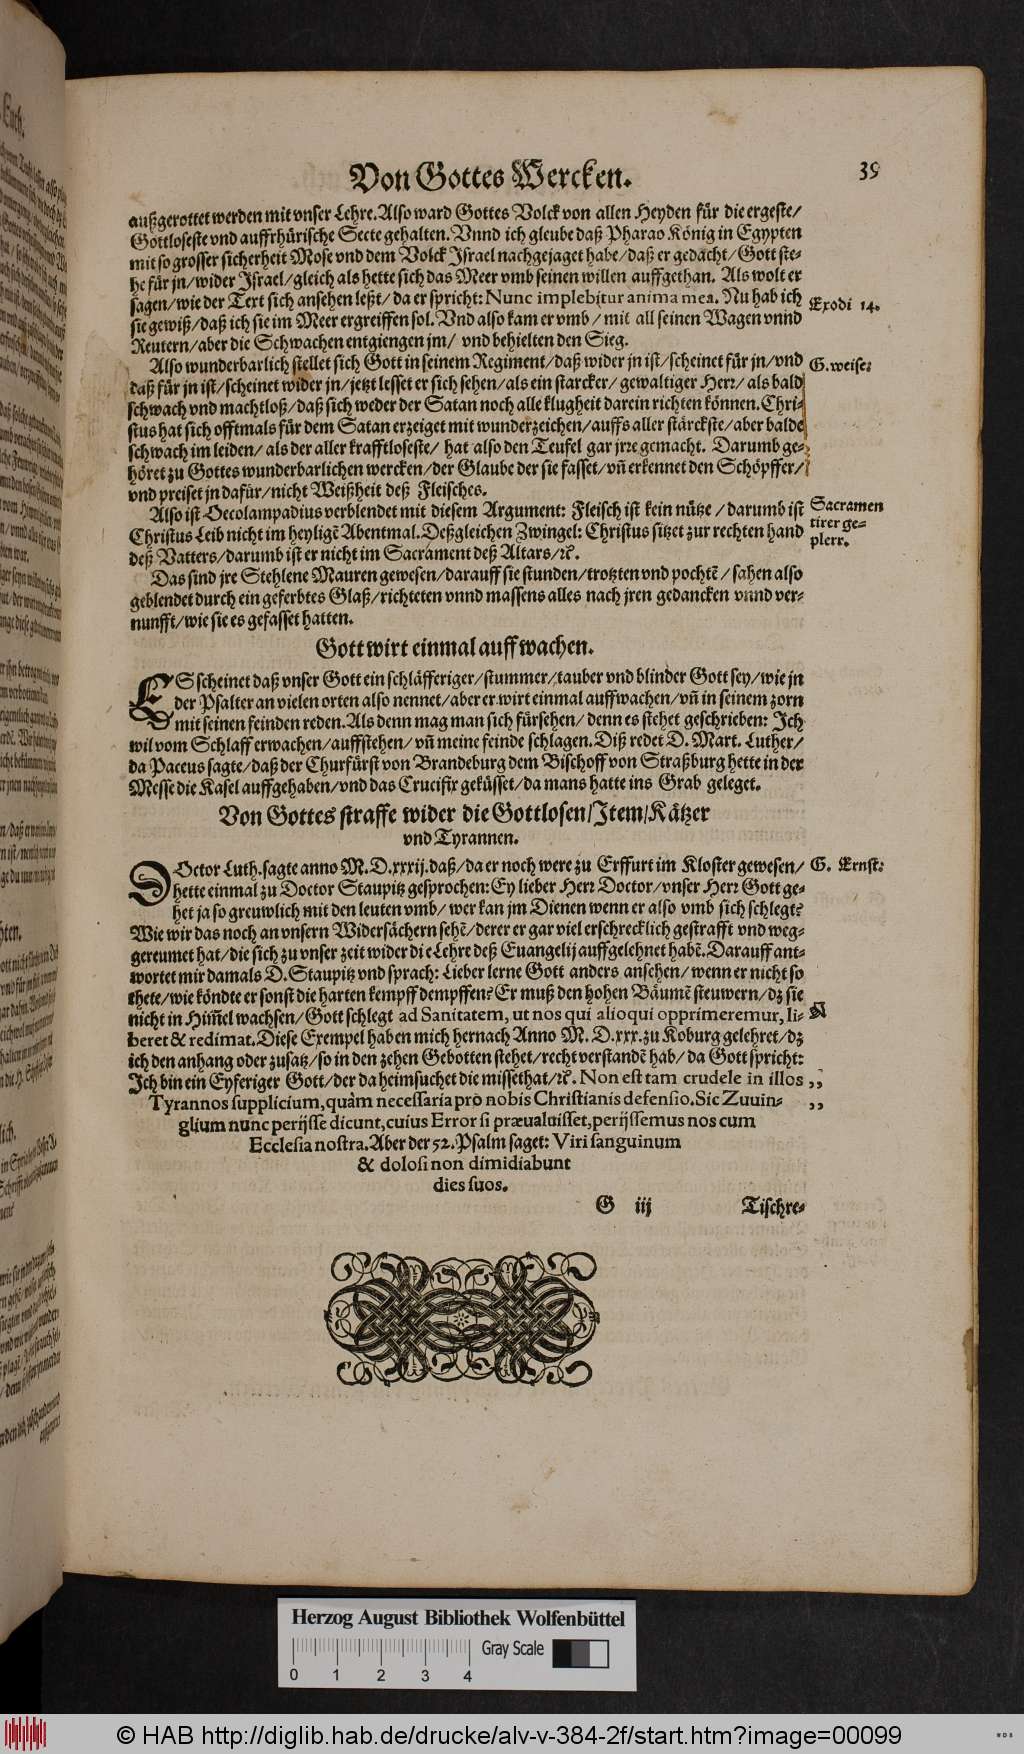 Von Gottes Wercken. 39
außgerottet werden mit vnser Lehre. Also ward Gottes Volck von allen Heyden für die ergeste/
Gottloseste vnd auffrhürische Secte gehalten. Vnnd ich gleube daß Pharao König in Egypten
mit so grosser sicherheit Mose vnd dem Volck Israel nachgejaget habe/ daß er gedacht/ Gott ste-
he für jn/ wider Israel/ gleich als hette sich das Meer vmb seinen willen auffgethan. Als wolt er
sagen/ wie der Text sich ansehen leßt/ da er spricht: Nunc implebitur anima mea. Nu hab ich
Exodi 14.
sie gewiß/ daß ich sie im Meer ergreiffen sol. Vnd also kam er vmb/ mit all seinen Wagen vnnd
Reutern/ aber die Schwachen entgiengen jm/ vnd behielten den Sieg.
Also wunderbarlich stellet sich Gott in seinem Regiment/ daß wider jn ist/ scheinet für jn/ vnd
G. weise:
daß für jn ist/ scheinet wider jn/ jetzt lesset er sich sehen/ als ein starcker/ gewaltiger Herr/ als bald
schwach vnd machtloß/ daß sich weder der Satan noch alle klugheit darein richten können. Chri-
stus hat sich offtmals für dem Satan erzeiget mit wunderzeichen/ auffs aller stärckste/ aber balde
schwach im leiden/ als der aller krafftloseste/ hat also den Teufel gar jrre gemacht. Darumb ge-
höret zu Gottes wunderbarlichen wercken/ der Glaube der sie fasset/ vñ erkennet den Schöpffer/
vnd preiset jn dafür/ nicht Weißheit deß Fleisches.
Also ist Oecolampadius verblendet mit diesem Argument: Fleisch ist kein nütze/ darumb ist
Sacramen
tirer ge-
plerr.
Christus Leib nicht im heyligẽ Abentmal. Deßgleichen Zwingel: Christus sitzet zur rechten hand
deß Vatters/ darumb ist er nicht im Sacrament deß Altars/ ꝛc.
Das sind jre Stehlene Mauren gewesen/ darauff sie stunden/ trotzten vnd pochtẽ/ sahen also
geblendet durch ein geferbtes Glaß/ richteten vnnd massens alles nach jren gedancken vnnd ver-
nunfft/ wie sie es gefasset hatten.
Gott wirt einmal auffwachen.
ES scheinet daß vnser Gott ein schläfferiger/ stummer/ tauber vnd blinder Gott sey/ wie jn
der Psalter an vielen orten also nennet/ aber er wirt einmal auffwachen/ vñ in seinem zorn
mit seinen feinden reden. Als denn mag man sich fürsehen/ denn es stehet geschrieben: Ich
wil vom Schlaff erwachen/ auffstehen/ vñ meine feinde schlagen. Diß redet D. Mart. Luther/
da Paceus sagte/ daß der Churfürst von Brandeburg dem Bischoff von Straßburg hette in der
Messe die Kasel auffgehaben/ vnd das Crucifix geküsset/ da mans hatte ins Grab geleget.
Von Gottes straffe wider die Gottlosen/ Item/ Kätzer
vnd Tyrannen.
DOctor Luth. sagte anno M. D. xxxij. daß/ da er noch were zu Erffurt im Kloster gewesen/
G. Ernst:
hette einmal zu Doctor Staupitz gesprochen: Ey lieber Herr Doctor/ vnser Herr Gott ge-
het ja so greuwlich mit den leuten vmb/ wer kan jm Dienen wenn er also vmb sich schlegt?
Wie wir das noch an vnsern Widersächern sehẽ/ derer er gar viel erschrecklich gestrafft vnd weg-
gereumet hat/ die sich zu vnser zeit wider die Lehre deß Euangelij auffgelehnet habẽ. Darauff ant-
wortet mir damals D. Staupitz vnd sprach: Lieber lerne Gott anders ansehen/ wenn er nicht so
thete/ wie köndte er sonst die harten kempff dempffen? Er muß den hohen Bäumẽ steuwern/ dz sie
nicht in Him̃el wachsen/ Gott schlegt ad Sanitatem, ut nos qui alioqui opprimeremur, li-
beret & redimat. Diese Exempel haben mich hernach Anno M. D. xxx. zu Koburg gelehret/ dz
ich den anhang oder zusatz/ so in den zehen Gebotten stehet/ recht verstandẽ hab/ da Gott spricht:
Ich bin ein Eyferiger Gott/ der da heimsuchet die missethat/ ꝛc. Non est tam crudele in illos ,,
Tyrannos supplicium, quàm necessaria pro nobis Christianis defensio. Sic Zuuin- ,,
glium nunc perijsse dicunt, cuius Error si præualuisset, perijssemus nos cum
Ecclesia nostra. Aber der 52. Psalm saget: Viri sanguinum
& dolosi non dimidiabunt
dies suos.
G iij Tischre-
Herzog August Bibliothek Wolfenbüttel
Gray Scale
0 1 2 3 4
© HAB http://diglib.hab.de/drucke/alv-v-384-2f/start.htm?image=00099